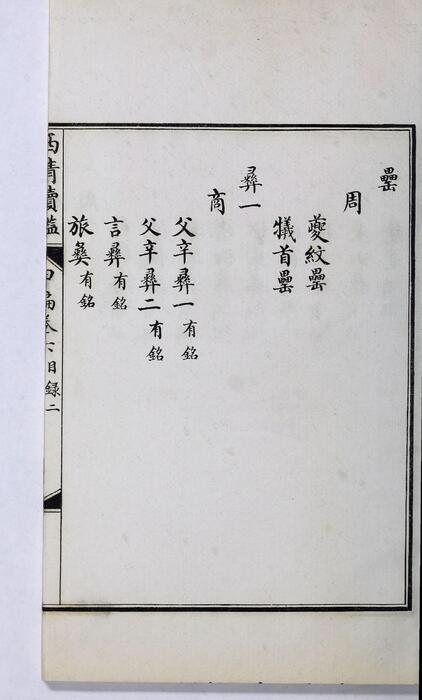 罍
周
夔紋罍
犧首罍
彝一
商
父辛彝一有銘
父辛彝二有銘
言彝有銘
旅彝有銘
西清續鑑 甲編卷六目録二